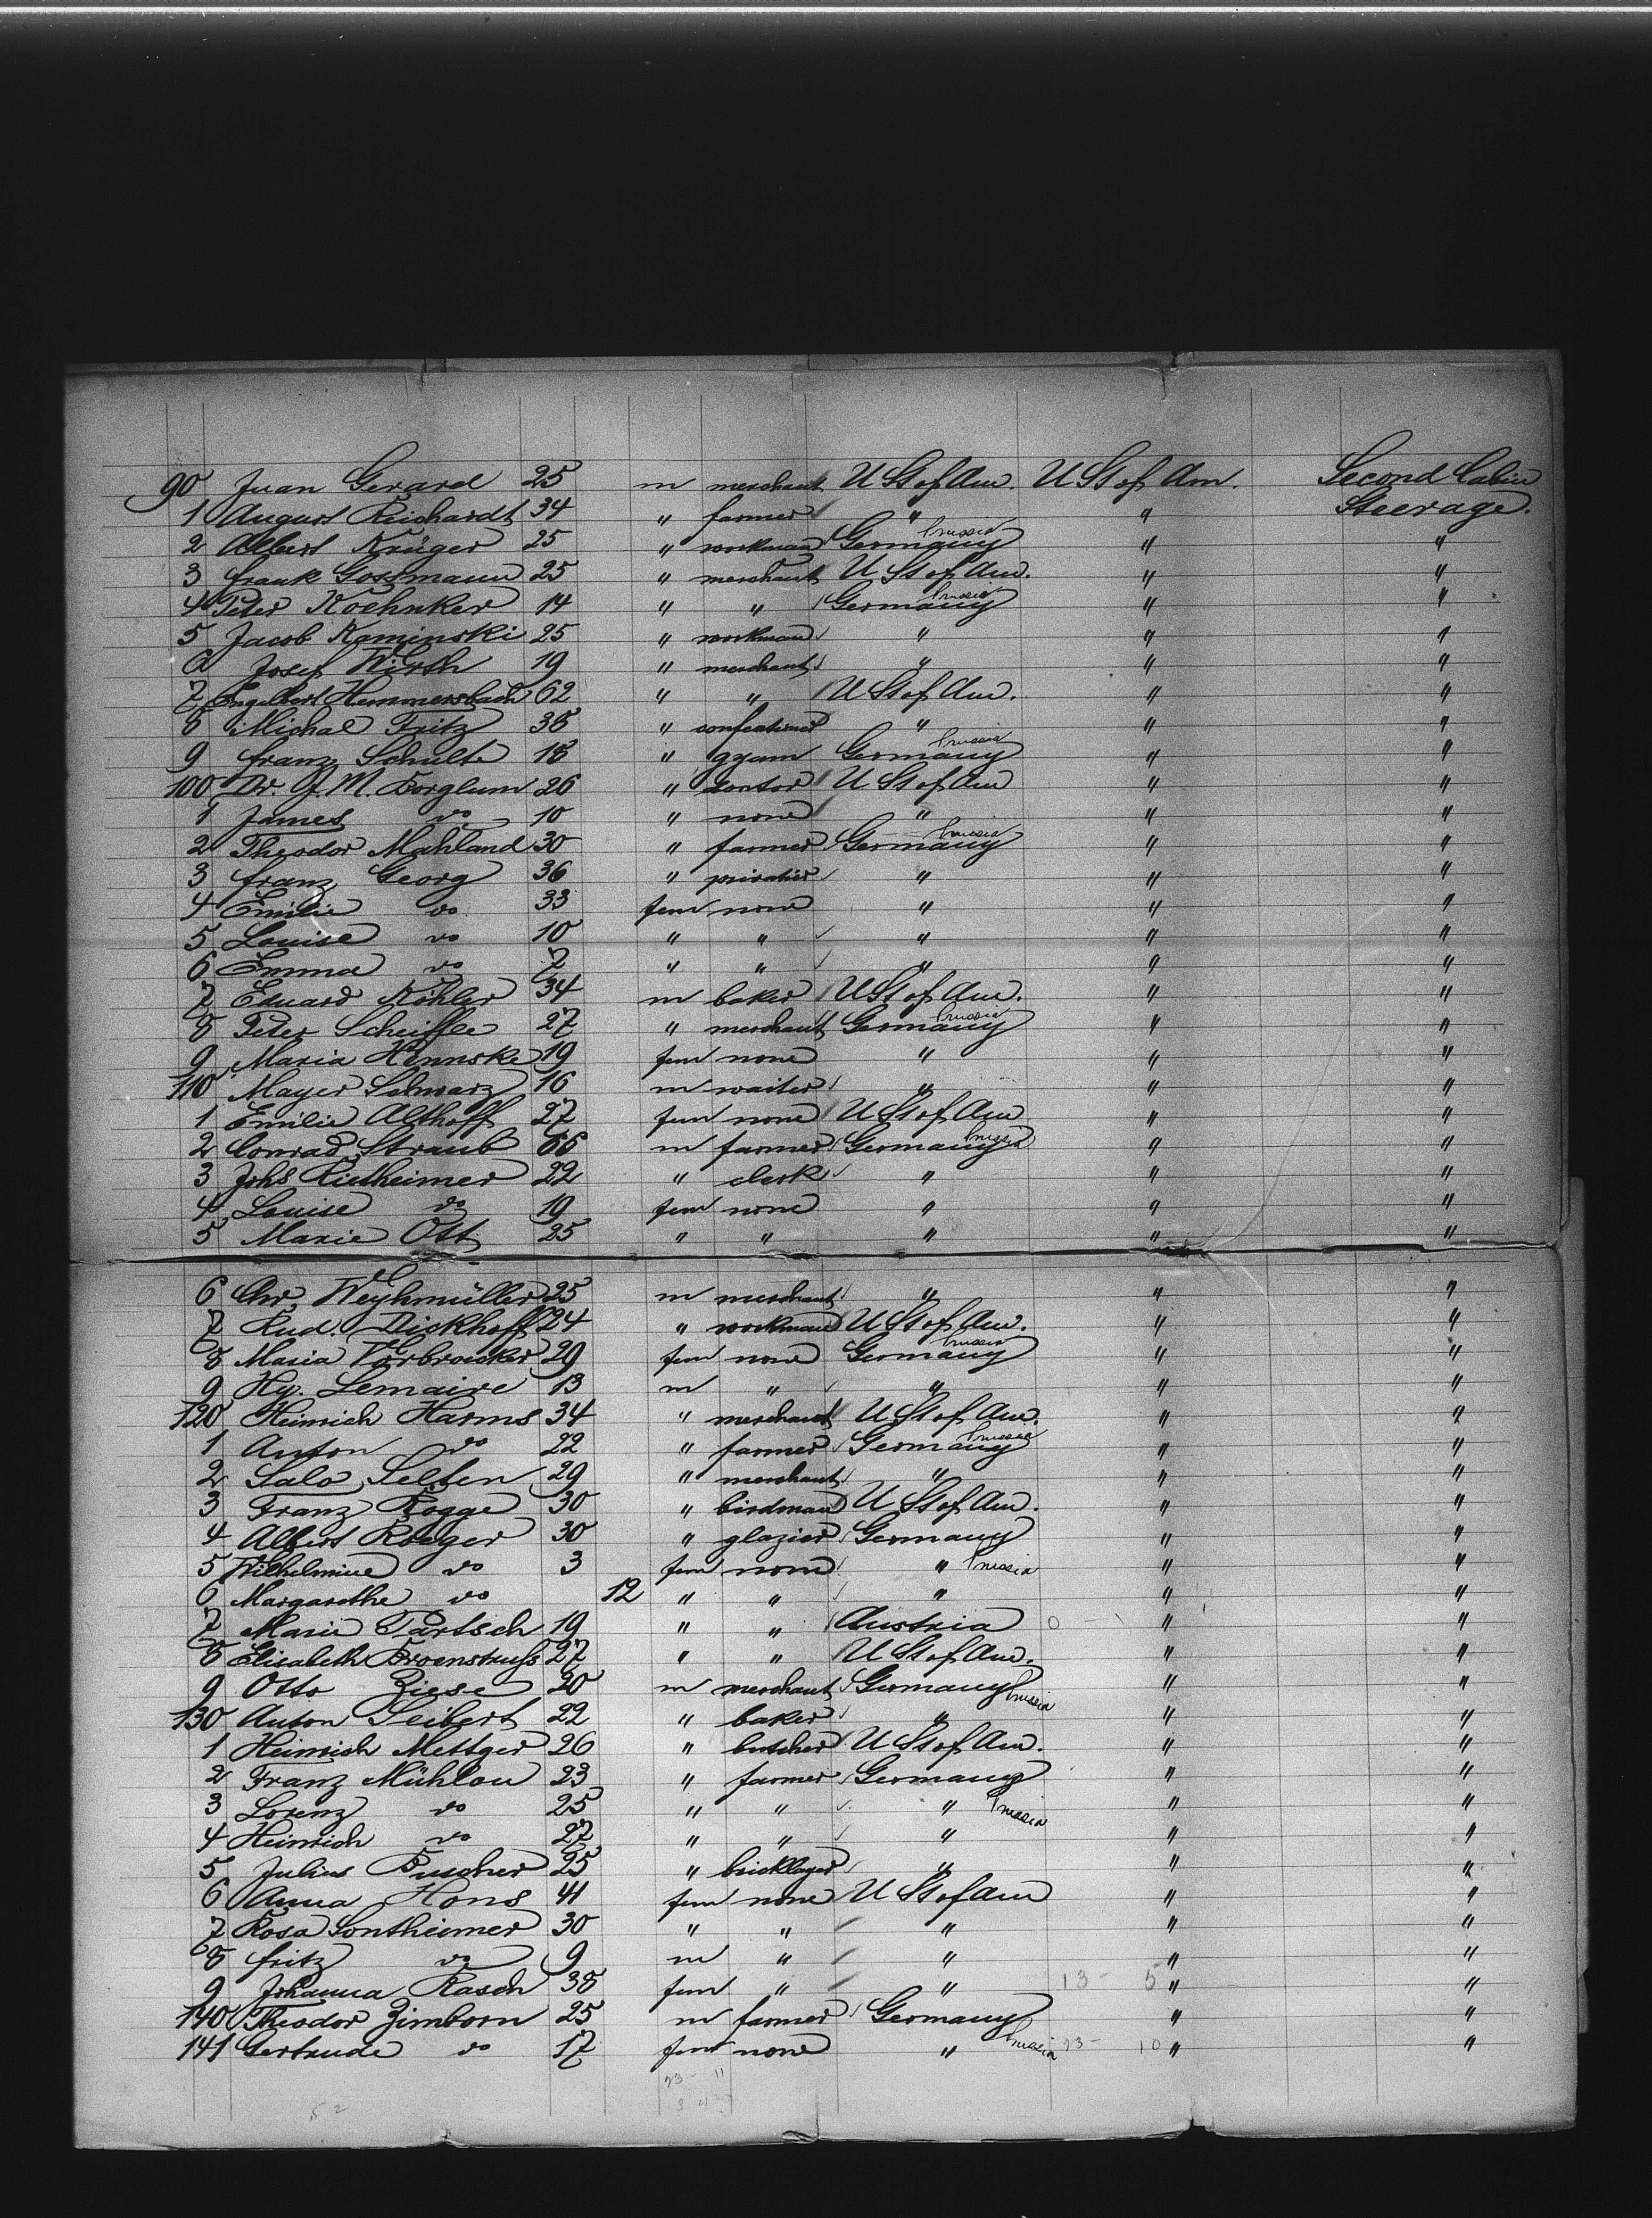 90 Juan Gerard 25 m merchant U St of Am. U St of Am. Second Cabin
1 August Reichardt 34 " farmer " " Steerage.
2 Albert Krüger 25 " workman Germany Prussia " "
3 Frank Gossmann 25 " merchant U St of Am. " "
4 Peter Koehnker 14 " " Germany Prussia " "
5 Jacob Kaminski 25 " workman " " "
6 Josef Wirth 19 " merchant " " "
7 Engelbert Hemmersbach 62 " " U St of Am. " "
8 Michal Fritz 38 " " " "
9 Franz Schulte 18 " gyam Germany Prussia " "
100 Dr. J. M. Borglum 26 " doctor U St of Am " "
1 James do 10 " none " " "
2 Theodor Mahland 30 " farmer Germany Prussia " "
3 Franz Georg 36 " privatier " " "
4 Emilie do 33 fem none " " "
5 Louise do 10 " " " " "
6 Emma do 7 " " " " "
7 Eduard Köhler 34 m baker U St of Am. " "
8 Peter Scheiffle 27 " merchant Germany Prussia " "
9 Maria Hennske 19 fem none " " "
110 Mayer Schwarz 16 m waiter " " "
1 Emilie Althoff 27 fem none U St of Am " "
2 Conrad Straub 66 m farmer Germany Prussia " "
3 Johs Rietheimer 22 " clerk " " "
4 Louise do 19 fem none " " "
5 Marie Ott 25 " " " " "
6 Chr. Weyhmüller 25 m merchant " " "
7 Rud. Dickhoff 24 " workman U St of Am. " "
8 Maria Vorbroucker 29 fem none Germany Prussia " "
9 Hy. Lemaire 13 m " " " "
120 Heinrich Harms 34 " merchant U St of Am. " "
1 Anton do 22 " farmer Germany Prussia " "
2 Salo Selten 29 " merchant " " "
3 Franz Rogge 30 " birdman U St of Am. " "
4 Albert Roeger 30 " glazier Germany " "
5 Wilhelmine do 3 fem none " Prussia " "
6 Margarethe do 12 " " " " "
7 Marie Partsch 19 " " Austria 0 " "
8 Elisabeth Broenstruss 27 " " U St of Am. " "
9 Otto Ziese 20 m merchant Germany Prussia " "
130 Anton Seibert 22 " baker " " "
1 Heinrich Mettger 26 " butcher U St of Am. " "
2 Franz Mühlou 23 " farmer Germany " "
3 Lorenz do 25 " " " Prussia " "
4 Heinrich do 27 " " " " "
5 Julius Buscher 25 " bricklayer " " "
6 Anna Hons 41 fem none U St of Am " "
7 Rosa Sontheimer 30 " " " " "
8 Fritz do 9 m " " " "
9 Johanna Rasch 38 fem " " 13 - 5 " "
140 Theodor Zimborn 25 m farmer Germany " "
141 Gertrude do 17 fem none " Prussia 23 - 10 " "
23 - 11
3 4
52